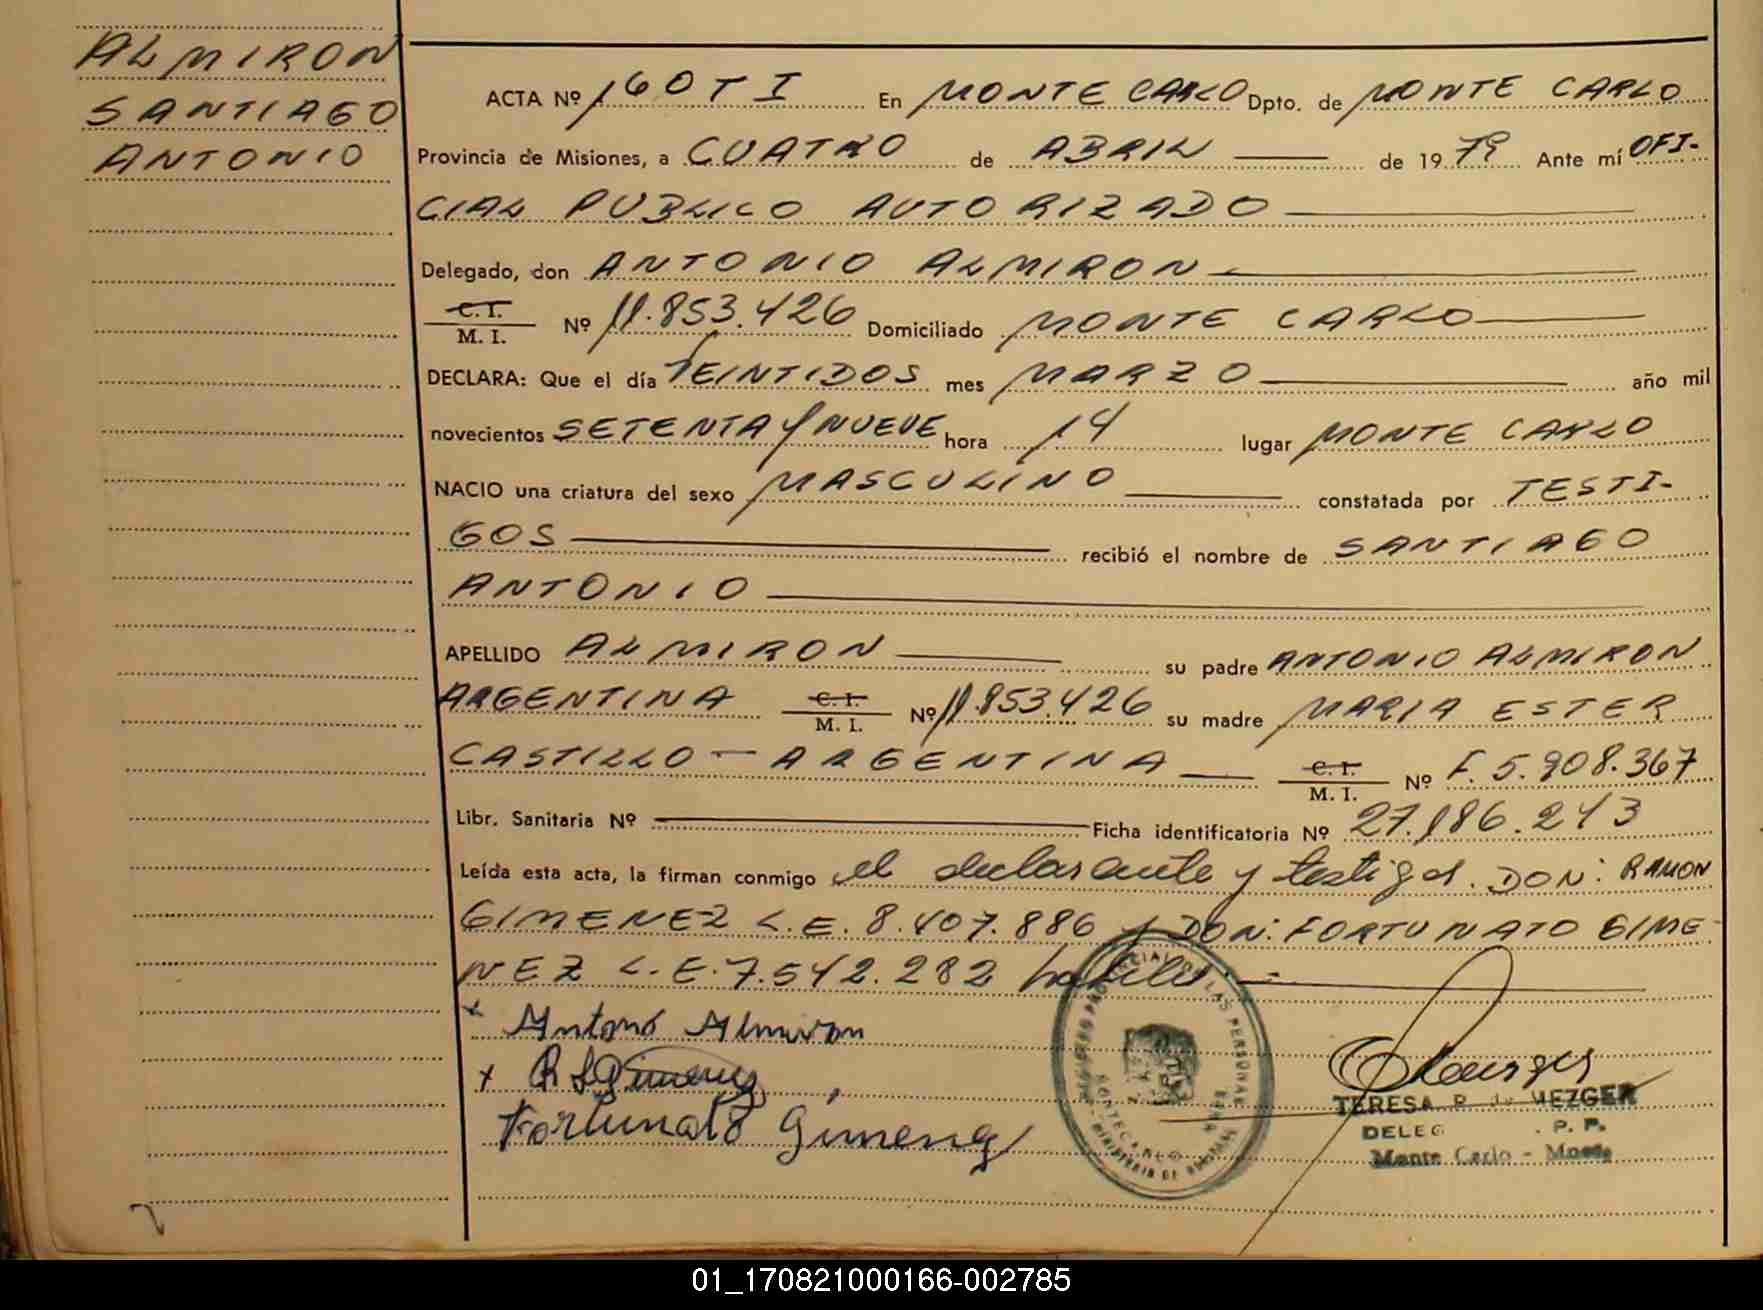 ALMIRON
SANTIAGO
ANTONIO
ACTA Nº 160 T I En MONTE CARLO Dpto. de MONTE CARLO
Provincia de Misiones, a CUATRO de ABRIL de 1979 Ante mí OFI-
CIAL PUBLICO AUTORIZADO
Delegado, don ANTONIO ALMIRON
C. I.
M. I. Nº 11.853.426 Domiciliado MONTE CARLO
DECLARA: Que el día VEINTIDOS mes MARZO año mil
novecientos SETENTA y NUEVE hora 14 lugar MONTE CARLO
NACIO una criatura del sexo MASCULINO constatada por TESTI-
GOS recibió el nombre de SANTIAGO
ANTONIO
APELLIDO ALMIRON su padre ANTONIO ALMIRON
ARGENTINA C. I.
M. I. Nº 11.853.426 su madre MARIA ESTER
CASTILLO - ARGENTINA C. I.
M. I. Nº F. 5.908.367
Libr. Sanitaria Nº Ficha identificatoria Nº 27.186.213
Leída esta acta, la firman conmigo el declarante y testigos. DON: RAMON
GIMENEZ L.E. 8.407.886 y DON: FORTUNATO GIME-
NEZ L.E. 7.542.282 habiles.-
x Antonio Almiron
x Gimenez
Fortunato Gimenez
DE LAS PERSONAS
MONTECARLO
MINISTERIO DE
TERESA R. de MEZGER
DELEG . P. P.
Monte Carlo - Mnes
01_170821000166-002785